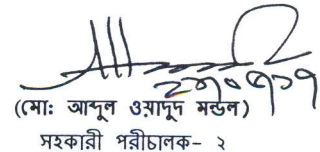 (মো: আব্দুল ওয়াদুদ মন্ডল)
সহকারী পরীচালক- ২